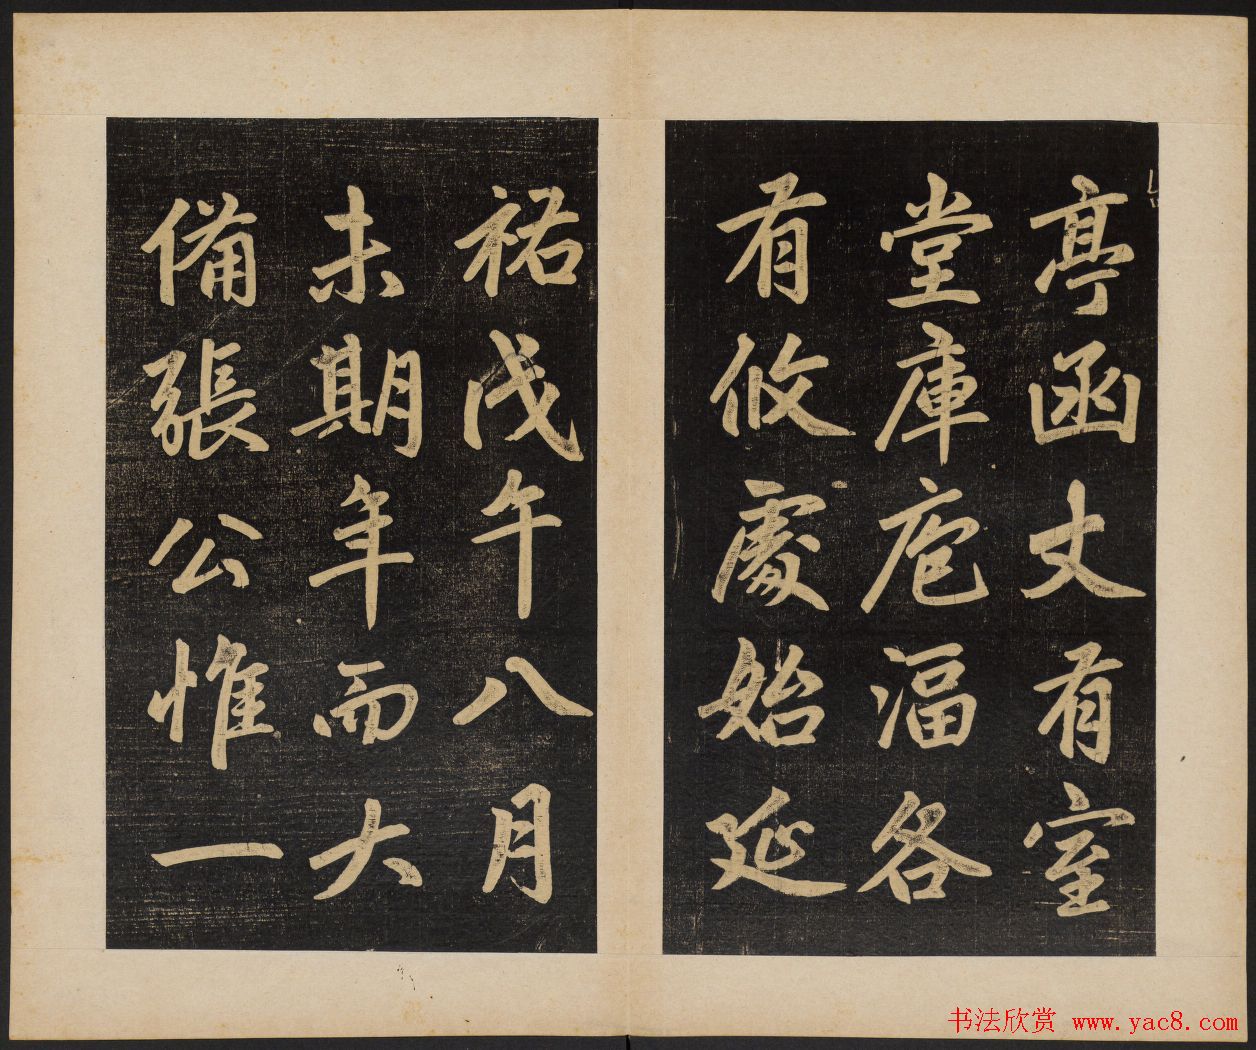 亭函丈有室
堂庫庖湢各
有攸處始延
祐戊午八月
未期年而大
備張公惟一
书法欣赏 www.yac8.com